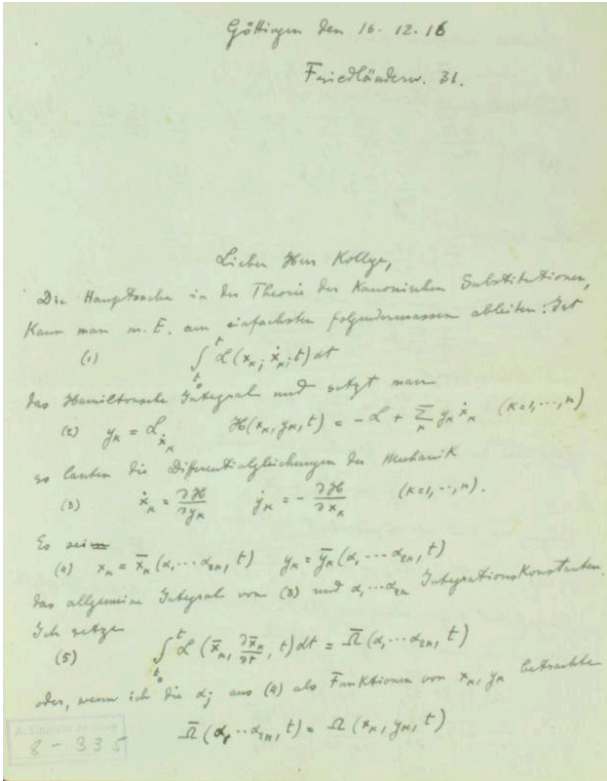 Göttingen den 16. 12. 16
Friedländerw. 31.
Lieber Herr Kollege,
Die Hauptsache in der Theorie der Kanonischen Substitutionen,
kann man m. E. am einfachsten folgendermassen ableiten: Ist
(1) ∫_{t_0}^{t} L(x_κ; ẋ_κ; t) dt
das Hamiltonsche Integral und setzt man
(2) y_κ = L_{ẋ_κ} H(x_κ, y_κ, t) = - L + Σ_κ y_κ ẋ_κ (κ=1,⋯,n)
so lauten die Differentialgleichungen der Mechanik
(3) ẋ_κ = ∂H/∂y_κ ẏ_κ = - ∂H/∂x_κ (κ=1,⋯,n).
Es sei
(4) x_κ = x̄_κ(α_1 ⋯ α_{2n}, t) y_κ = ȳ_κ(α_1 ⋯ α_{2n}, t)
das allgemeine Integral von (3) und α_1 ⋯ α_{2n} Integrationskonstanten.
Ich setze
(5) ∫_{t_0}^{t} L(x̄_κ, ∂x̄_κ/∂t, t) dt = Ω̄(α_1 ⋯ α_{2n}, t)
oder, wenn ich die α_j aus (4) als Funktionen von x_κ, y_κ betrachte
Ω̄(α_1 ⋯ α_{2n}, t) = Ω(x_κ, y_κ, t)
8 - 335